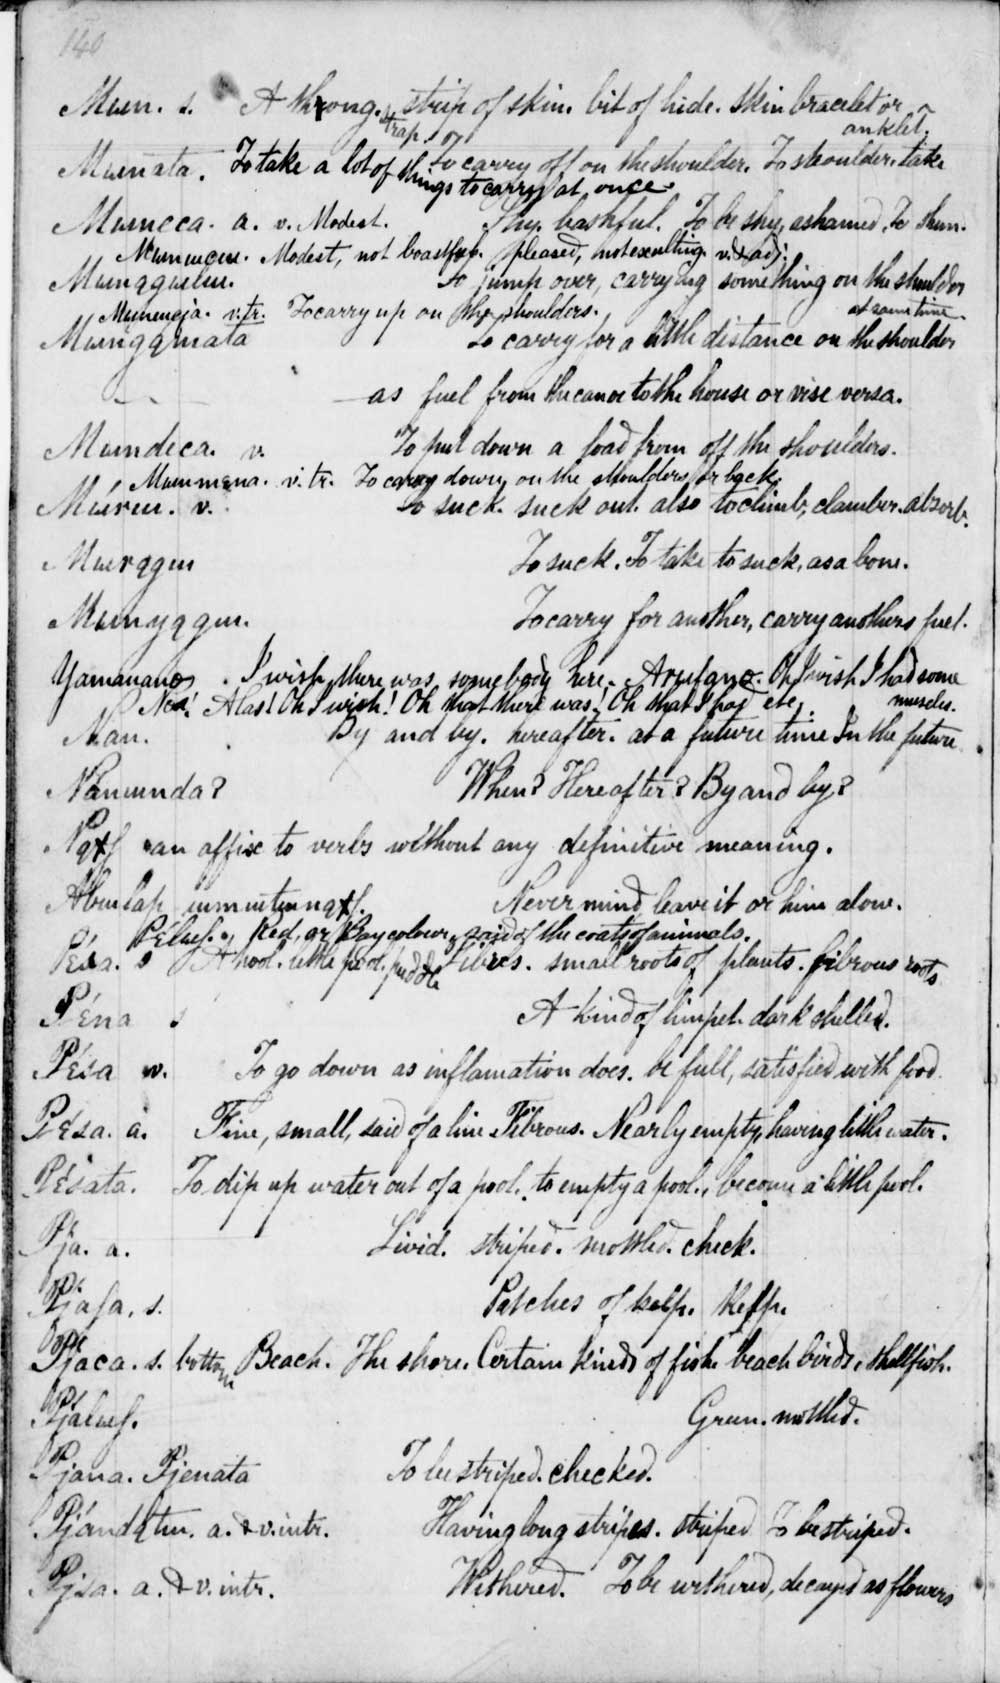 140
Mun. s. A throng. strap. strip of skin. bit of hide. Skin bracelet or anklet.
Munata. To take a lot of things to carry at once. or To carry off on the shoulder. To shoulder. take
Muncca. a. v. Modest. Shy. bashful. To be shy, ashamed. To shun.
Modest, not boastful. pleased, not exulting. v. & adj.
To jump over, carrying something on the shoulder at same time.
v. tr. To carry up on the shoulders.
To carry for a little distance on the shoulder
as fuel from the canoe to the house or vise versa.
Mundeca. v. To put down a load from off the shoulders.
v. tr. To carry down on the shoulders or back.
v. To suck. suck out. also to climb, clamber. absorb.
To suck. To take to suck, as a bone.
To carry for another, carry anothers fuel.
I wish there was somebody here. Oh I wish I had some mussels.
Alas! Oh I wish! Oh that there was. Oh that I had etc.
Nan. By and by. hereafter. at a future time In the future
When? Hereafter? By and by?
an affix to verbs without any definitive meaning.
Never mind, leave it or him alone.
Red, or Bay colour, said of the coats of animals.
s A pool. little pool. puddle Fibres. small roots of plants. fibrous roots
Péna s A kind of limpet dark shelled.
Pésa v. To go down as inflamation does. be full, satisfied with food.
Pésa. a. Fine, small, said of a line Fibrous. Nearly empty, having little water.
Pésata. To dip up water out of a pool. to empty a pool. become a little pool.
Pja. a. Livid. striped. mottled. check.
s. Patches of kelp. Kelp.
Pjaca. s. bottom Beach. The shore. Certain kinds of fish. beach birds, shellfish.
Green. mottled.
Pjana. Pjenata To be striped. checked.
a. & v. intr. Having long stripes. striped To be striped.
Pjsa. a. & v. intr. Withered. To be withered, decayed as flowers